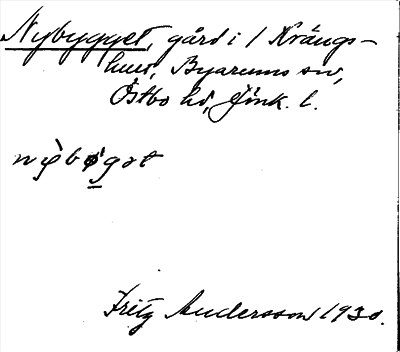 Nybygget, gård i 1 Krängs-
hult, Byarums sn,
Östbo hd, Jönk. l.
nỳbø̀gat
Fritz Andersson 1930.